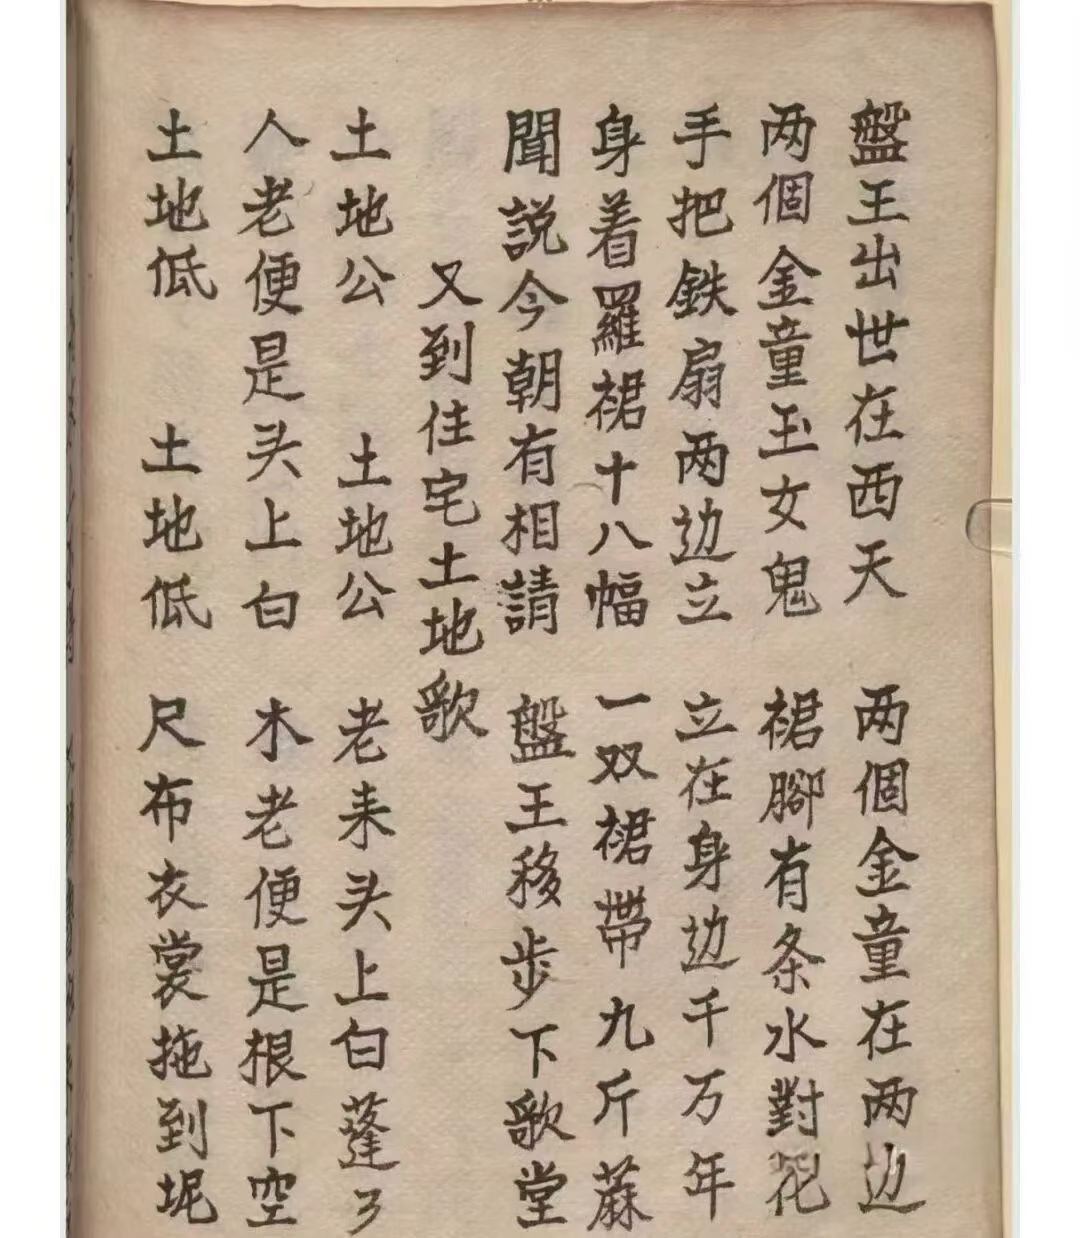 盤王出世在西天　两個金童在两边
两個金童玉女鬼　裙腳有条水對花
手把鉄扇两边立　立在身边千万年
身着羅裙十八幅　一双裙帶九斤蔴
聞説今朝有相請　盤王移步下歌堂
又到住宅土地歌
土地公　土地公　老耒头上白蓬了
人老便是头上白　木老便是根下空
土地低　土地低　尺布衣裳拖到坭